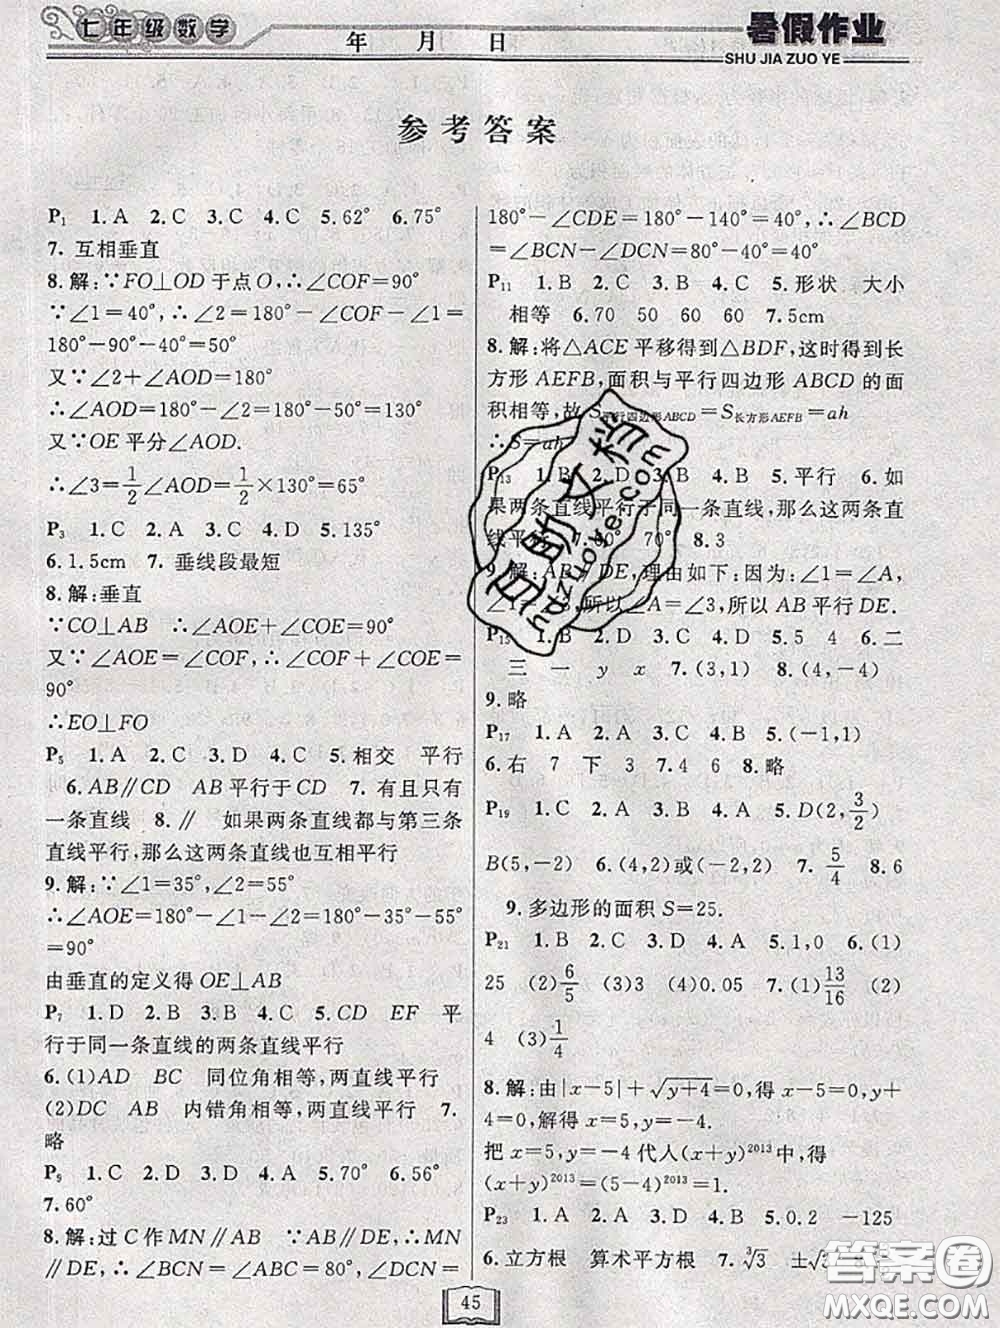 七年级数学
年 月 日
暑假作业
SHU JIA ZUO YE
参考答案
P₁ 1.A 2.C 3.C 4.C 5.62° 6.75°
7. 互相垂直
8.解:∵FO⊥OD于点O,∴∠COF=90°
∵∠1=40°,∴∠2=180°-∠COF-∠1=
180°-90°-40°=50°
又∵∠2+∠AOD=180°
∴∠AOD=180°-∠2=180°-50°=130°
又∵OE平分∠AOD.
∴∠3=1/2∠AOD=1/2×130°=65°
P₃ 1.C 2.A 3.C 4.D 5.135°
6.1.5cm 7. 垂线段最短
8.解:垂直
∵CO⊥AB ∴∠AOE+∠COE=90°
又∵∠AOE=∠COF,∴∠COF+∠COE=
90°
∴EO⊥FO
P₅ 1.A 2.C 3.D 4.C 5.相交 平行
6.AB∥CD AB平行于CD 7. 有且只有
一条直线 8.∥ 如果两条直线都与第三条
直线平行,那么这两条直线也互相平行
9.解:∵∠1=35°,∠2=55°
∴∠AOE=180°-∠1-∠2=180°-35°-55°
=90°
由垂直的定义得OE⊥AB
P₇ 1.D 2.B 3.B 4.C 5.CD EF 平
行于同一条直线的两条直线平行
6.(1)AD BC 同位角相等,两直线平行
(2)DC AB 内错角相等,两直线平行 7.
略
P₉ 1.C 2.C 3.D 4.A 5.70° 6.56°
7.60°
8.解:过C作MN∥AB ∵AB∥DE,∴MN
∥DE,∴∠BCN=∠ABC=80°,∠DCN=
180°-∠CDE=180°-140°=40°,∴∠BCD
=∠BCN-∠DCN=80°-40°=40°
P₁₁ 1.B 2.C 3.B 4.C 5.形状 大小
相等 6.70 50 60 60 7.5cm
8.解:将△ACE平移得到△BDF,这时得到长
方形AEFB,面积与平行四边形ABCD的面
积相等,故S平行四边形ABCD=S长方形AEFB=ah
∴S=ah
P₁₃ 1.B 2.D 3.B 4.B 5.平行 6.如
果两条直线平行于同一条直线,那么这两条直
线平行 7.90° 70° 8.3
9.解:AB∥DE,理由如下:因为∠1=∠A,
∠1=∠3,所以∠A=∠3,所以AB平行DE.
P₁₅ 1.B 2.D 3.D 4.D 5.5 4 6.二
三 一 y x 7.(3,1) 8.(4,-4)
9.略
P₁₇ 1.A 2.A 3.A 4.B 5.(-1,1)
6.右 7 下 3 7.4 6 8.略
P₁₉ 1.C 2.D 3.A 4.A 5.D(2,3/2)
B(5,-2) 6.(4,2)或(-2,2) 7.5/4 8.6
9.多边形的面积S=25.
P₂₁ 1.B 2.D 3.D 4.A 5.1,0 6.(1)
25 (2)6/5 (3)3 (4)0.05 7.(1)13/16 (2)
4 (3)1/4
8.解:由|x-5|+√(y+4)=0,得x-5=0,y+
4=0,解得x=5,y=-4.
把x=5,y=-4代人(x+y)²⁰¹³中,得
(x+y)²⁰¹³=(5-4)²⁰¹³=1.
P₂₃ 1.A 2.D 3.B 4.D 5.0.2 -125
6.立方根 算术平方根 7.³√3 ±√3
45
自助文档
uazuoye.com
答案圈
MXQE.COM